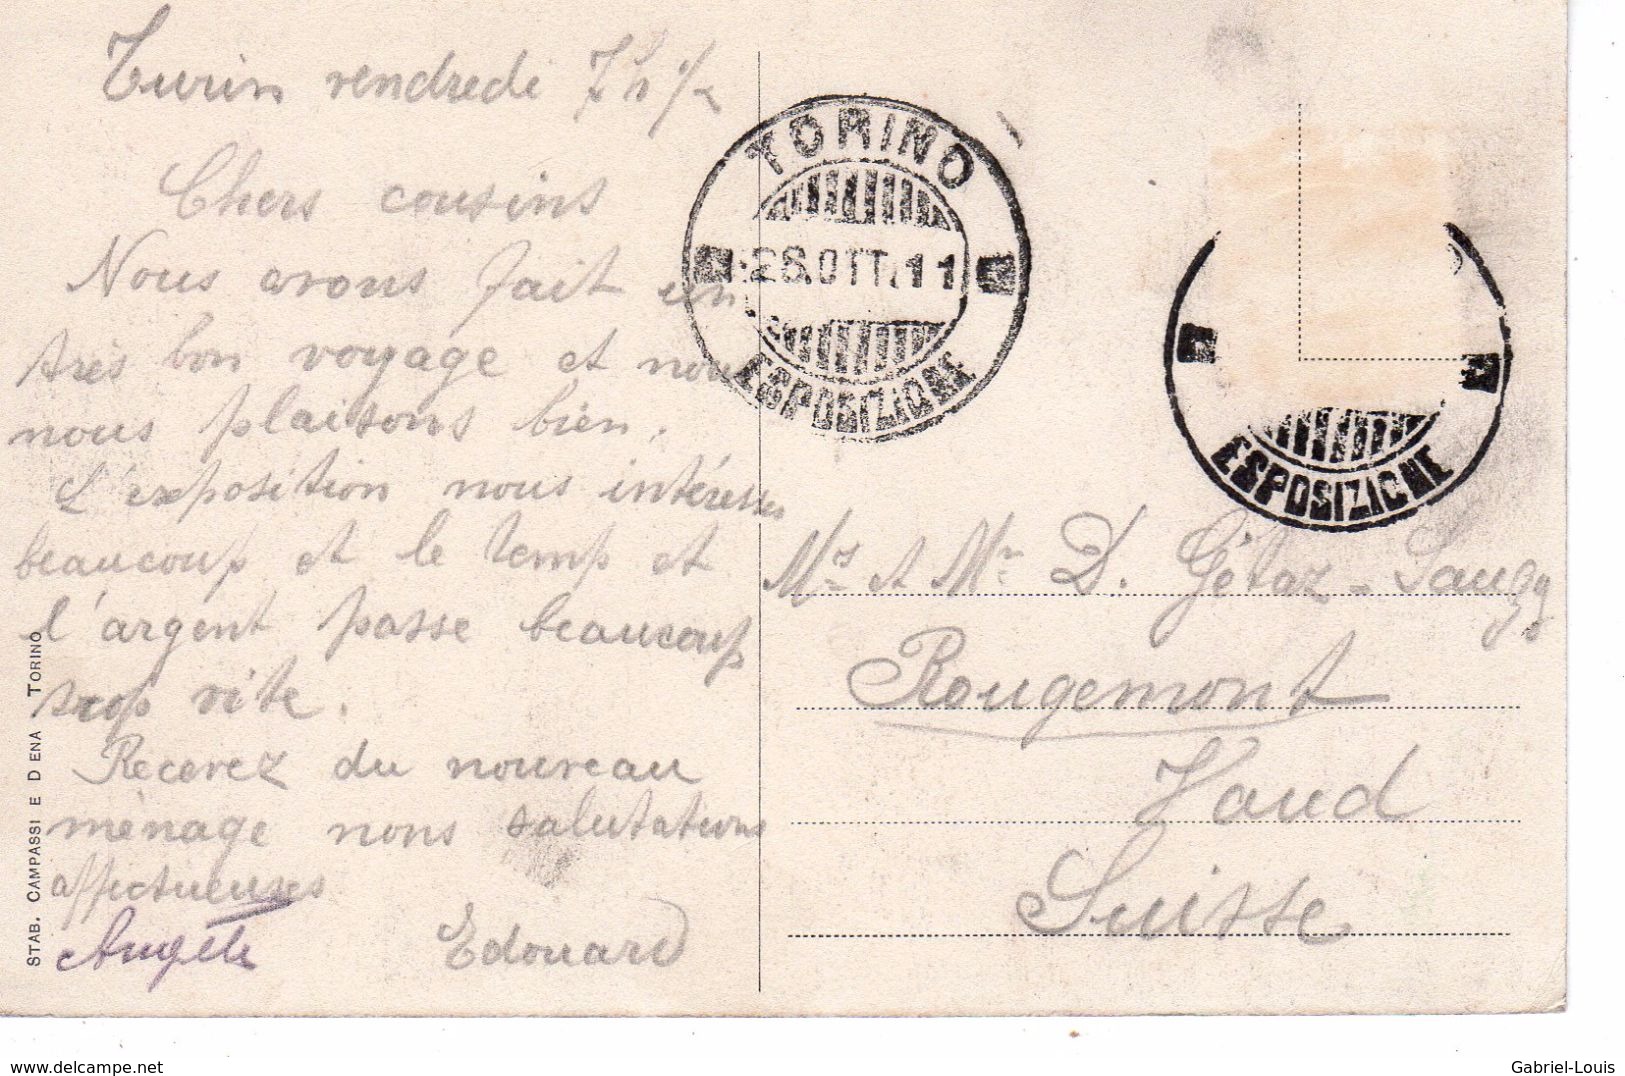 Turin vendredi 7 h 1/2
Chers cousins
Nous avons fait un
très bon voyage et nous
nous plaisons bien.
L'exposition nous intéresse
beaucoup et le temp et
l'argent passe beaucoup
trop vite.
Recevez du nouveau
ménage nons salutations
affectueuses
Angèle Edouard
STAB. CAMPASSI E DENA TORINO
TORINO
28.OTT.11
ESPOSIZIONE
ESPOSIZIONE
Mrs et Mr D. Gétaz-Saugy
Rougemont
Vaud
Suisse
www.delcampe.net
Gabriel-Louis